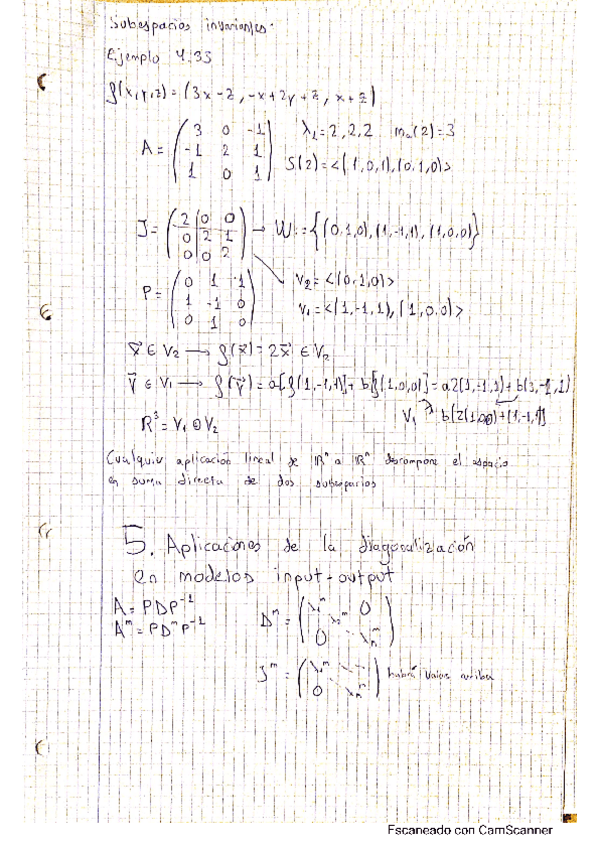 Subespacios invariantes.
Ejemplo 4.35
f(x,y,z) = (3x-z, -x+2y+z, x+z)
A = (3 0 -1 / -1 2 1 / 1 0 1) λ₁ = 2,2,2 mₐ(2) = 3
S(2) = <(1,0,1),(0,1,0)>
J = (2 0 0 / 0 2 1 / 0 0 2) → W = {(0,1,0),(1,-1,1),(1,0,0)}
P = (0 1 1 / 1 -1 0 / 0 1 0) V₂ = <(0,1,0)>
V₁ = <(1,-1,1),(1,0,0)>
x⃗ ∈ V₂ → f(x⃗) = 2x⃗ ∈ V₂
v⃗ ∈ V₁ → f(v⃗) = a[f(1,-1,1)] + b[f(1,0,0)] = a2(1,-1,1) + b(3,-1,1)
V₁ b[2(1,0,0)+(1,-1,1)]
R³ = V₁ ⊕ V₂
Cualquier aplicación lineal de Rⁿ a Rⁿ descompone el espacio
en suma directa de dos subespacios
5. Aplicaciones de la diagonalización
en modelos input-output
A = PDP⁻¹
Aᵐ = PDᵐP⁻¹ Dᵐ = (λ₁ᵐ 0 / λ₂ᵐ / 0 λₙᵐ)
Jᵐ = (λ₁ᵐ / 0 λₙᵐ) habrá valores arriba
Escaneado con CamScanner